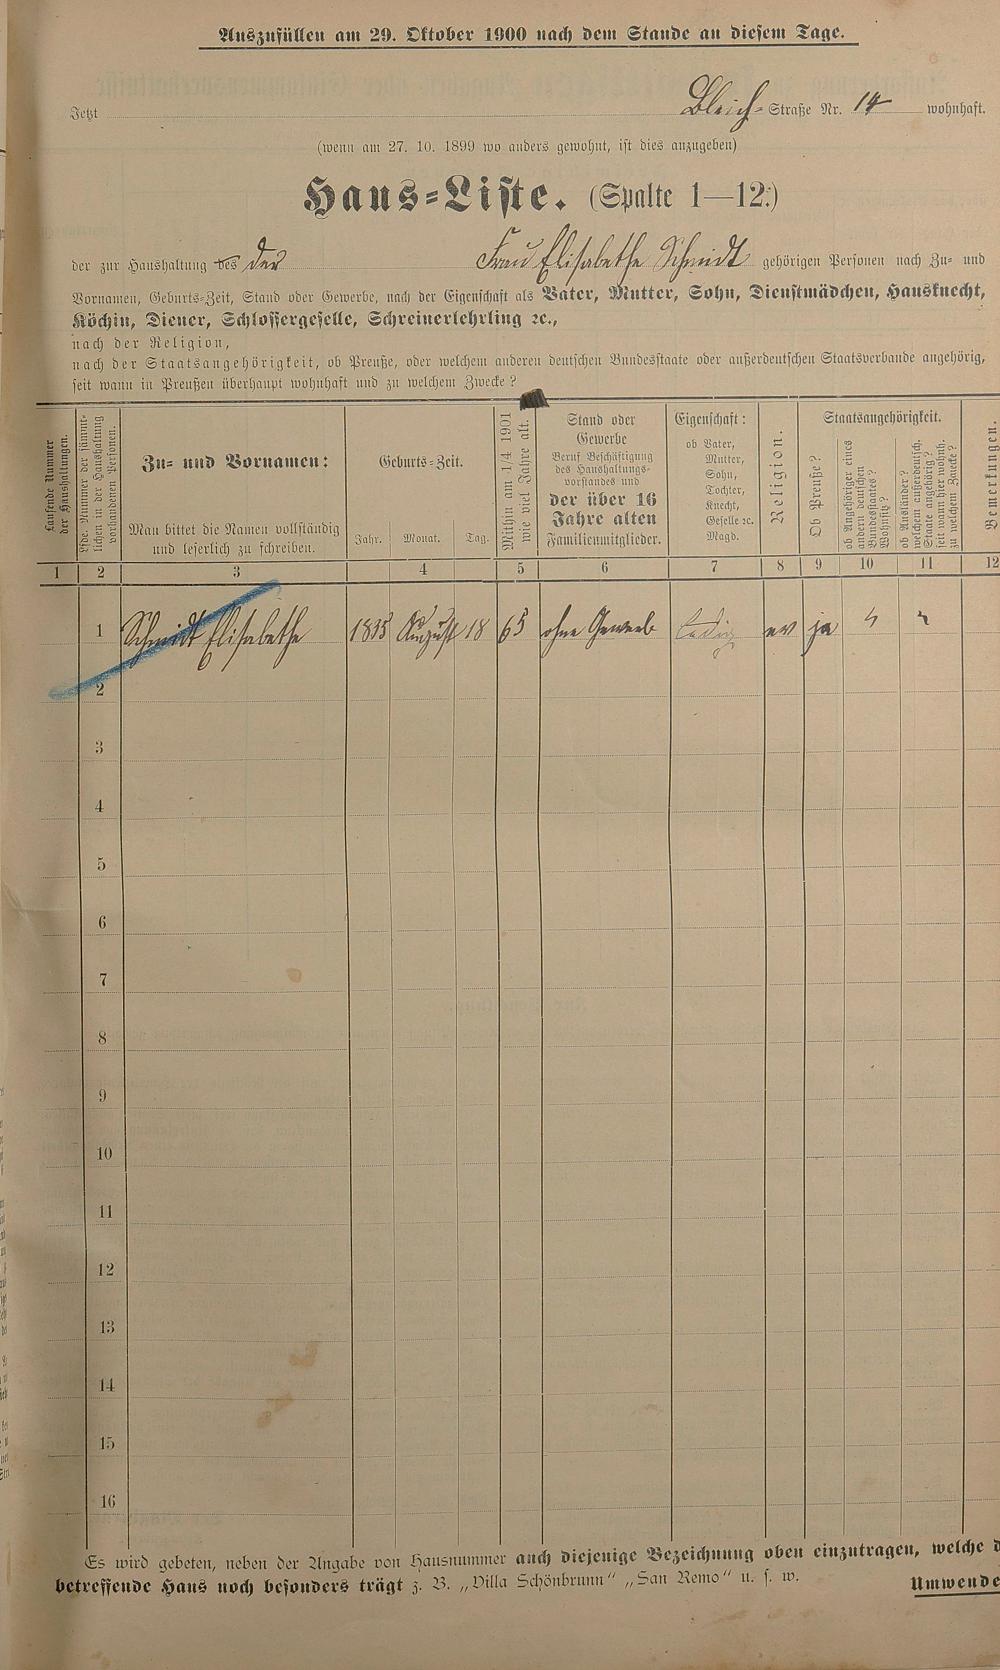 Auszufüllen am 29. Oktober 1900 nach dem Stande an diesem Tage.
Jetzt Bleich-Straße Nr. 14 wohnhaft.
(wenn am 27. 10. 1899 wo anders gewohnt, ist dies anzugeben)
Haus-Liste. (Spalte 1—12.)
der zur Haushaltung des der Frau Elisabethe Schmidt gehörigen Personen nach Zu- und
Vornamen, Geburts-Zeit, Stand oder Gewerbe, nach der Eigenschaft als Vater, Mutter, Sohn, Dienstmädchen, Hausknecht,
Köchin, Diener, Schlossergeselle, Schreinerlehrling ꝛc.,
nach der Religion,
nach der Staatsangehörigkeit, ob Preuße, oder welchem anderen deutschen Bundesstaate oder außerdeutschen Staatsverbande angehörig,
seit wann in Preußen überhaupt wohnhaft und zu welchem Zwecke?
Laufende Nummer
der Haushaltungen.
Lfde. Nummer der sämmt-
lichen in der Haushaltung
vorhandenen Personen.
Zu- und Vornamen:
Man bittet die Namen vollständig
und leserlich zu schreiben.
Geburts-Zeit.
Jahr. Monat. Tag.
Mithin am 1/4 1901
wie viel Jahre alt.
Stand oder
Gewerbe
Beruf Beschäftigung
des Haushaltungs-
vorstandes und
der über 16
Jahre alten
Familienmitglieder.
Eigenschaft:
ob Vater,
Mutter,
Sohn,
Tochter,
Knecht,
Geselle ꝛc.
Magd.
Religion.
Staatsangehörigkeit.
Ob Preuße?
ob Angehöriger eines
andern deutschen
Bundesstaates?
Wohnsitz?
ob Ausländer?
welchem außerdeutsch.
Staate angehörig?
seit wann hier wohnh.
zu welchem Zwecke?
Bemerkungen.
1 2 3 4 5 6 7 8 9 10 11 12
1 Schmidt Elisabethe 1835 August 18 65 ohne Gewerb ledig ev ja " "
2
3
4
5
6
7
8
9
10
11
12
13
14
15
16
Es wird gebeten, neben der Angabe von Hausnummer auch diejenige Bezeichnung oben einzutragen, welche d
betreffende Haus noch besonders trägt z. B. „Villa Schönbrunn" „San Remo" u. s. w.
Umwende